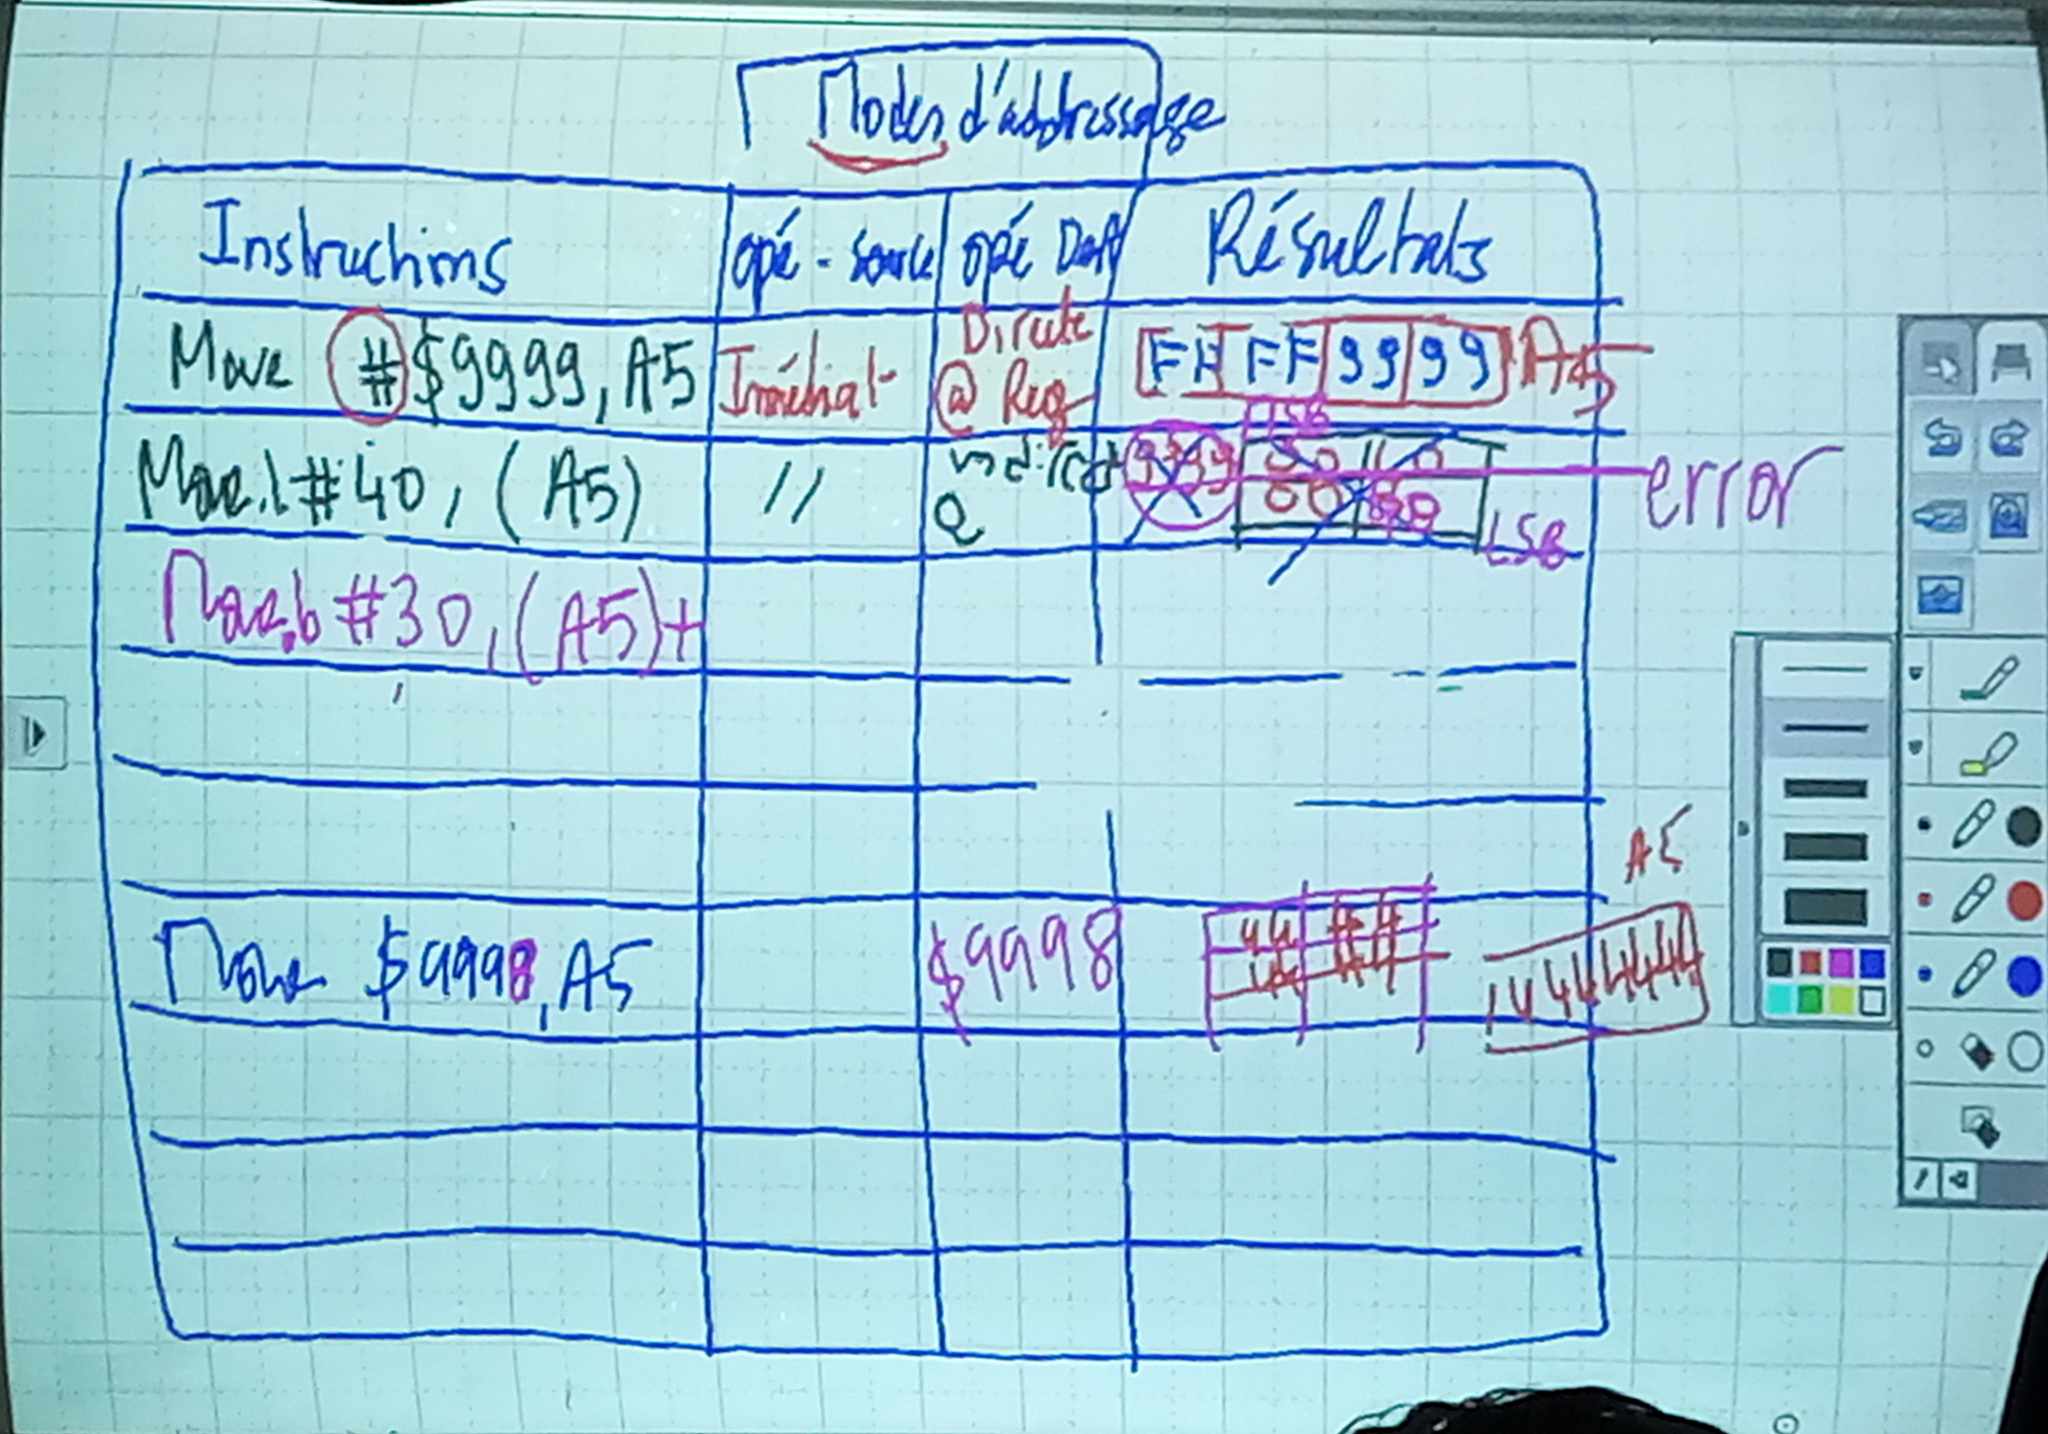 Modes d'addressage
Instructions opé-source opé Dest Résultats
Move #$9999, A5 Immédiat Directe @ Reg FF FF 99 99 A5
MSB
Move.l #40, (A5) // indirect 9999 00 00 error
LSB
Move.b #30, (A5)+
A5
Move $9998, A5 $9998 44 44 44 44 44444444